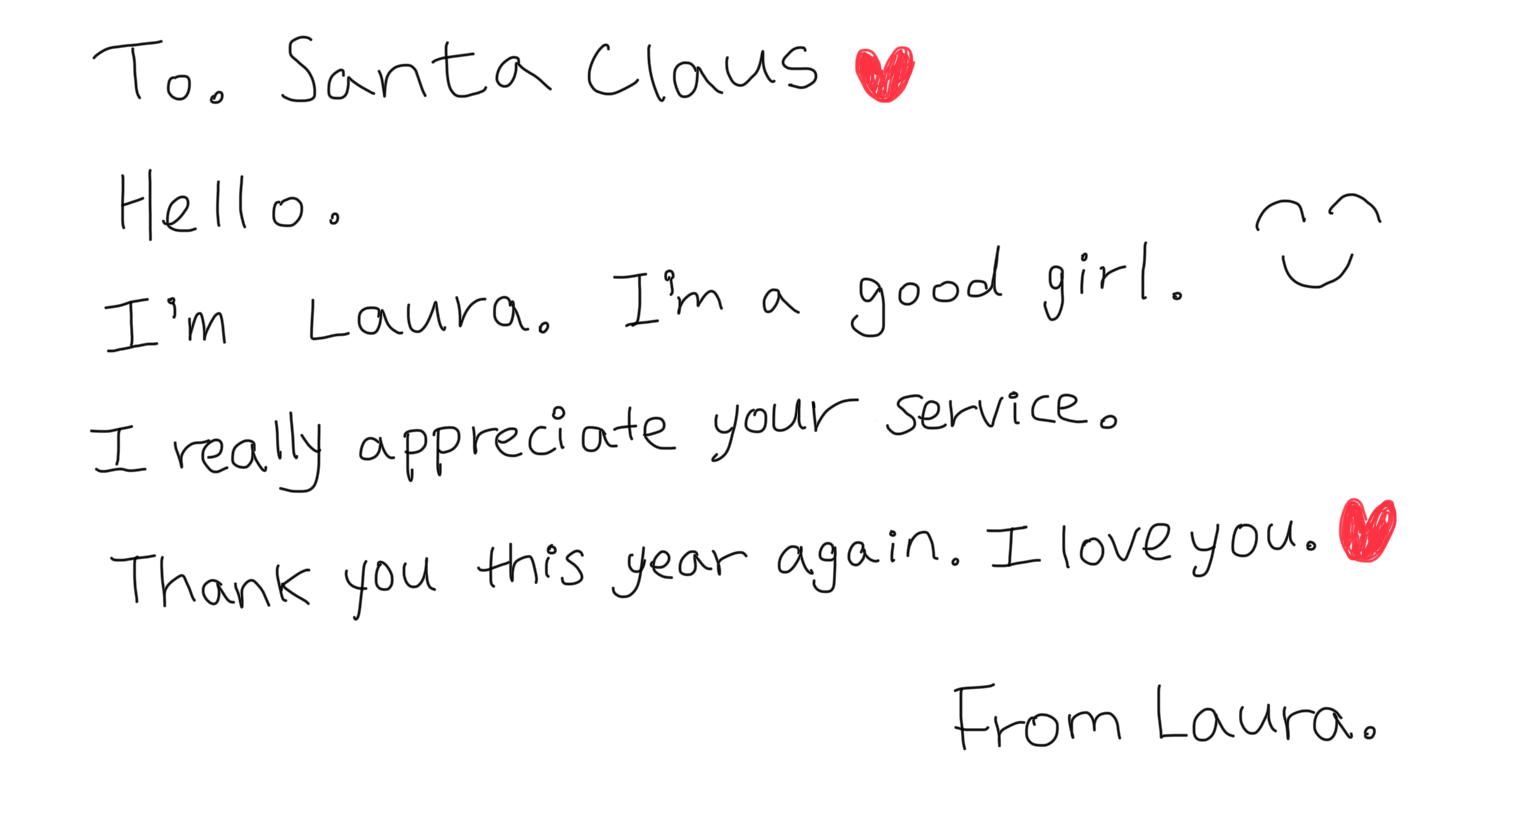 To. Santa Claus
Hello.
I'm Laura. I'm a good girl.
I really appreciate your service.
Thank you this year again. I love you.
From Laura.